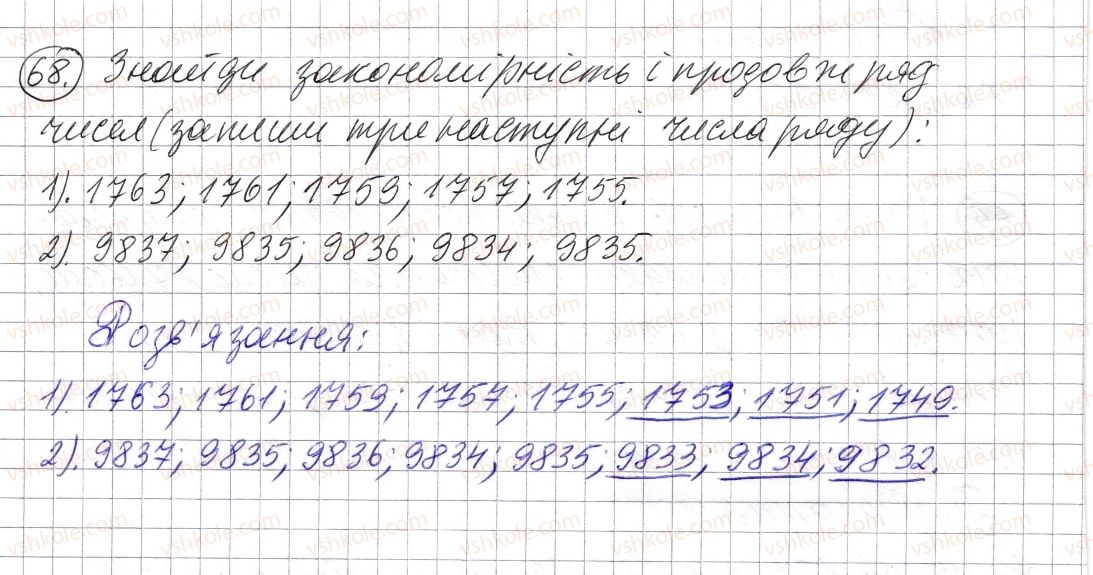 68. Знайди закономірність і продовж ряд
чисел (запиши три наступні числа ряду):
1). 1763; 1761; 1759; 1757; 1755.
2). 9837; 9835; 9836; 9834; 9835.
Розв'язання:
1). 1763; 1761; 1759; 1757; 1755; 1753; 1751; 1749.
2). 9837; 9835; 9836; 9834; 9835; 9833; 9834; 9832.